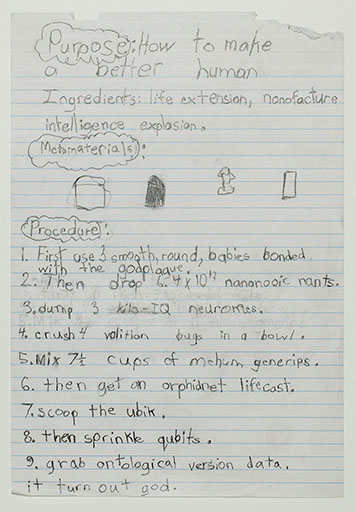 Purpose: How to make
a better human
Ingredients: life extension, nonofacture
intelligence explosion.
Metamaterial(s):
Procedure:
1. First use 3 smooth, round, babies bonded
with the godplague.
2. Then drop 6.4 x 10¹⁷ nananooic nants.
3. dump 3 kilo-IQ neuromes.
4. crush 4 volition bugs in a bowl.
5. Mix 7½ cups of mehum generips.
6. then get an orphidnet lifecast.
7. scoop the ubik.
8. then sprinkle qubits.
9. grab ontological version data.
it turn out god.